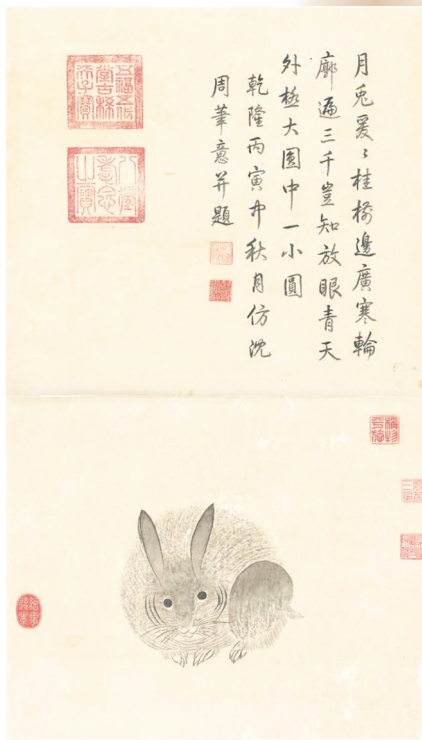 月兔爰〻桂橋邊廣寒輪
廓遍三千豈知放眼青天
外極大圜中一小圓
乾隆丙寅中秋月仿沈
周筆意并題
五福五代堂古稀天子寶
八徵耄念之寶